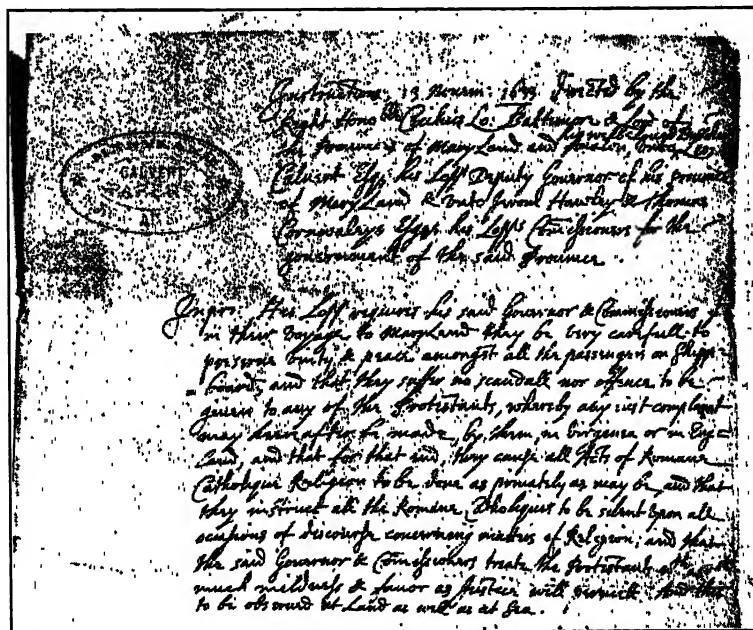 CALVERT
Instructions 13 Novem: 1633 directed by the
Right Honoble Cecilius Lo: Baltimore & Lord of
the Provinces of Mary Land and Avalon unto
his well beloved Brother Leo:
Calvert Esqr his Lopps Deputy Governor of his province
of Mary Land & unto Jerom Hawley & Thomas
Cornwaleys Esqrs his Lopps Comissioners for the
government of the said Province.
Inpri: His Lopp requires his said Governor & Commissioners yt
in their voyage to Mary Land they be very carefull to
preserve unity & peace amongst all the passengers on Shipp-
board, and that they suffer no scandall nor offence to be
given to any of the Protestants, whereby any just complaint
may heereafter be made, by them, in Virginea or in Eng-
land, and that for that end, they cause all Acts of Romane
Catholique Religion to be done as privately as may be, and that
they instruct all the Romane Catholiques to be silent upon all
occasions of discourse concerning matters of Religion; and that
the said Governor & Comissioners treate the Protestants wth as
much mildness & favor as Justice will permitt. And this
to be observed at Land as well as at Sea.